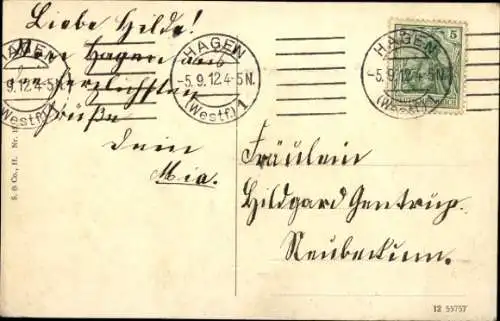 Liebe Hilde!
Von Hagen aus
die herzlichsten
Grüße
Dein
Mia.
HAGEN
-5.9.12.4-5N.
(Westf.) 1
HAGEN
-5.9.12.4-5N.
(Westf.) 1
HAGEN
-5.9.12.4-5N.
(Westf.)
5
Fräulein
Hildgard Gentrup.
Neubeckum.
S. & Co., H. Nr.
12 55757